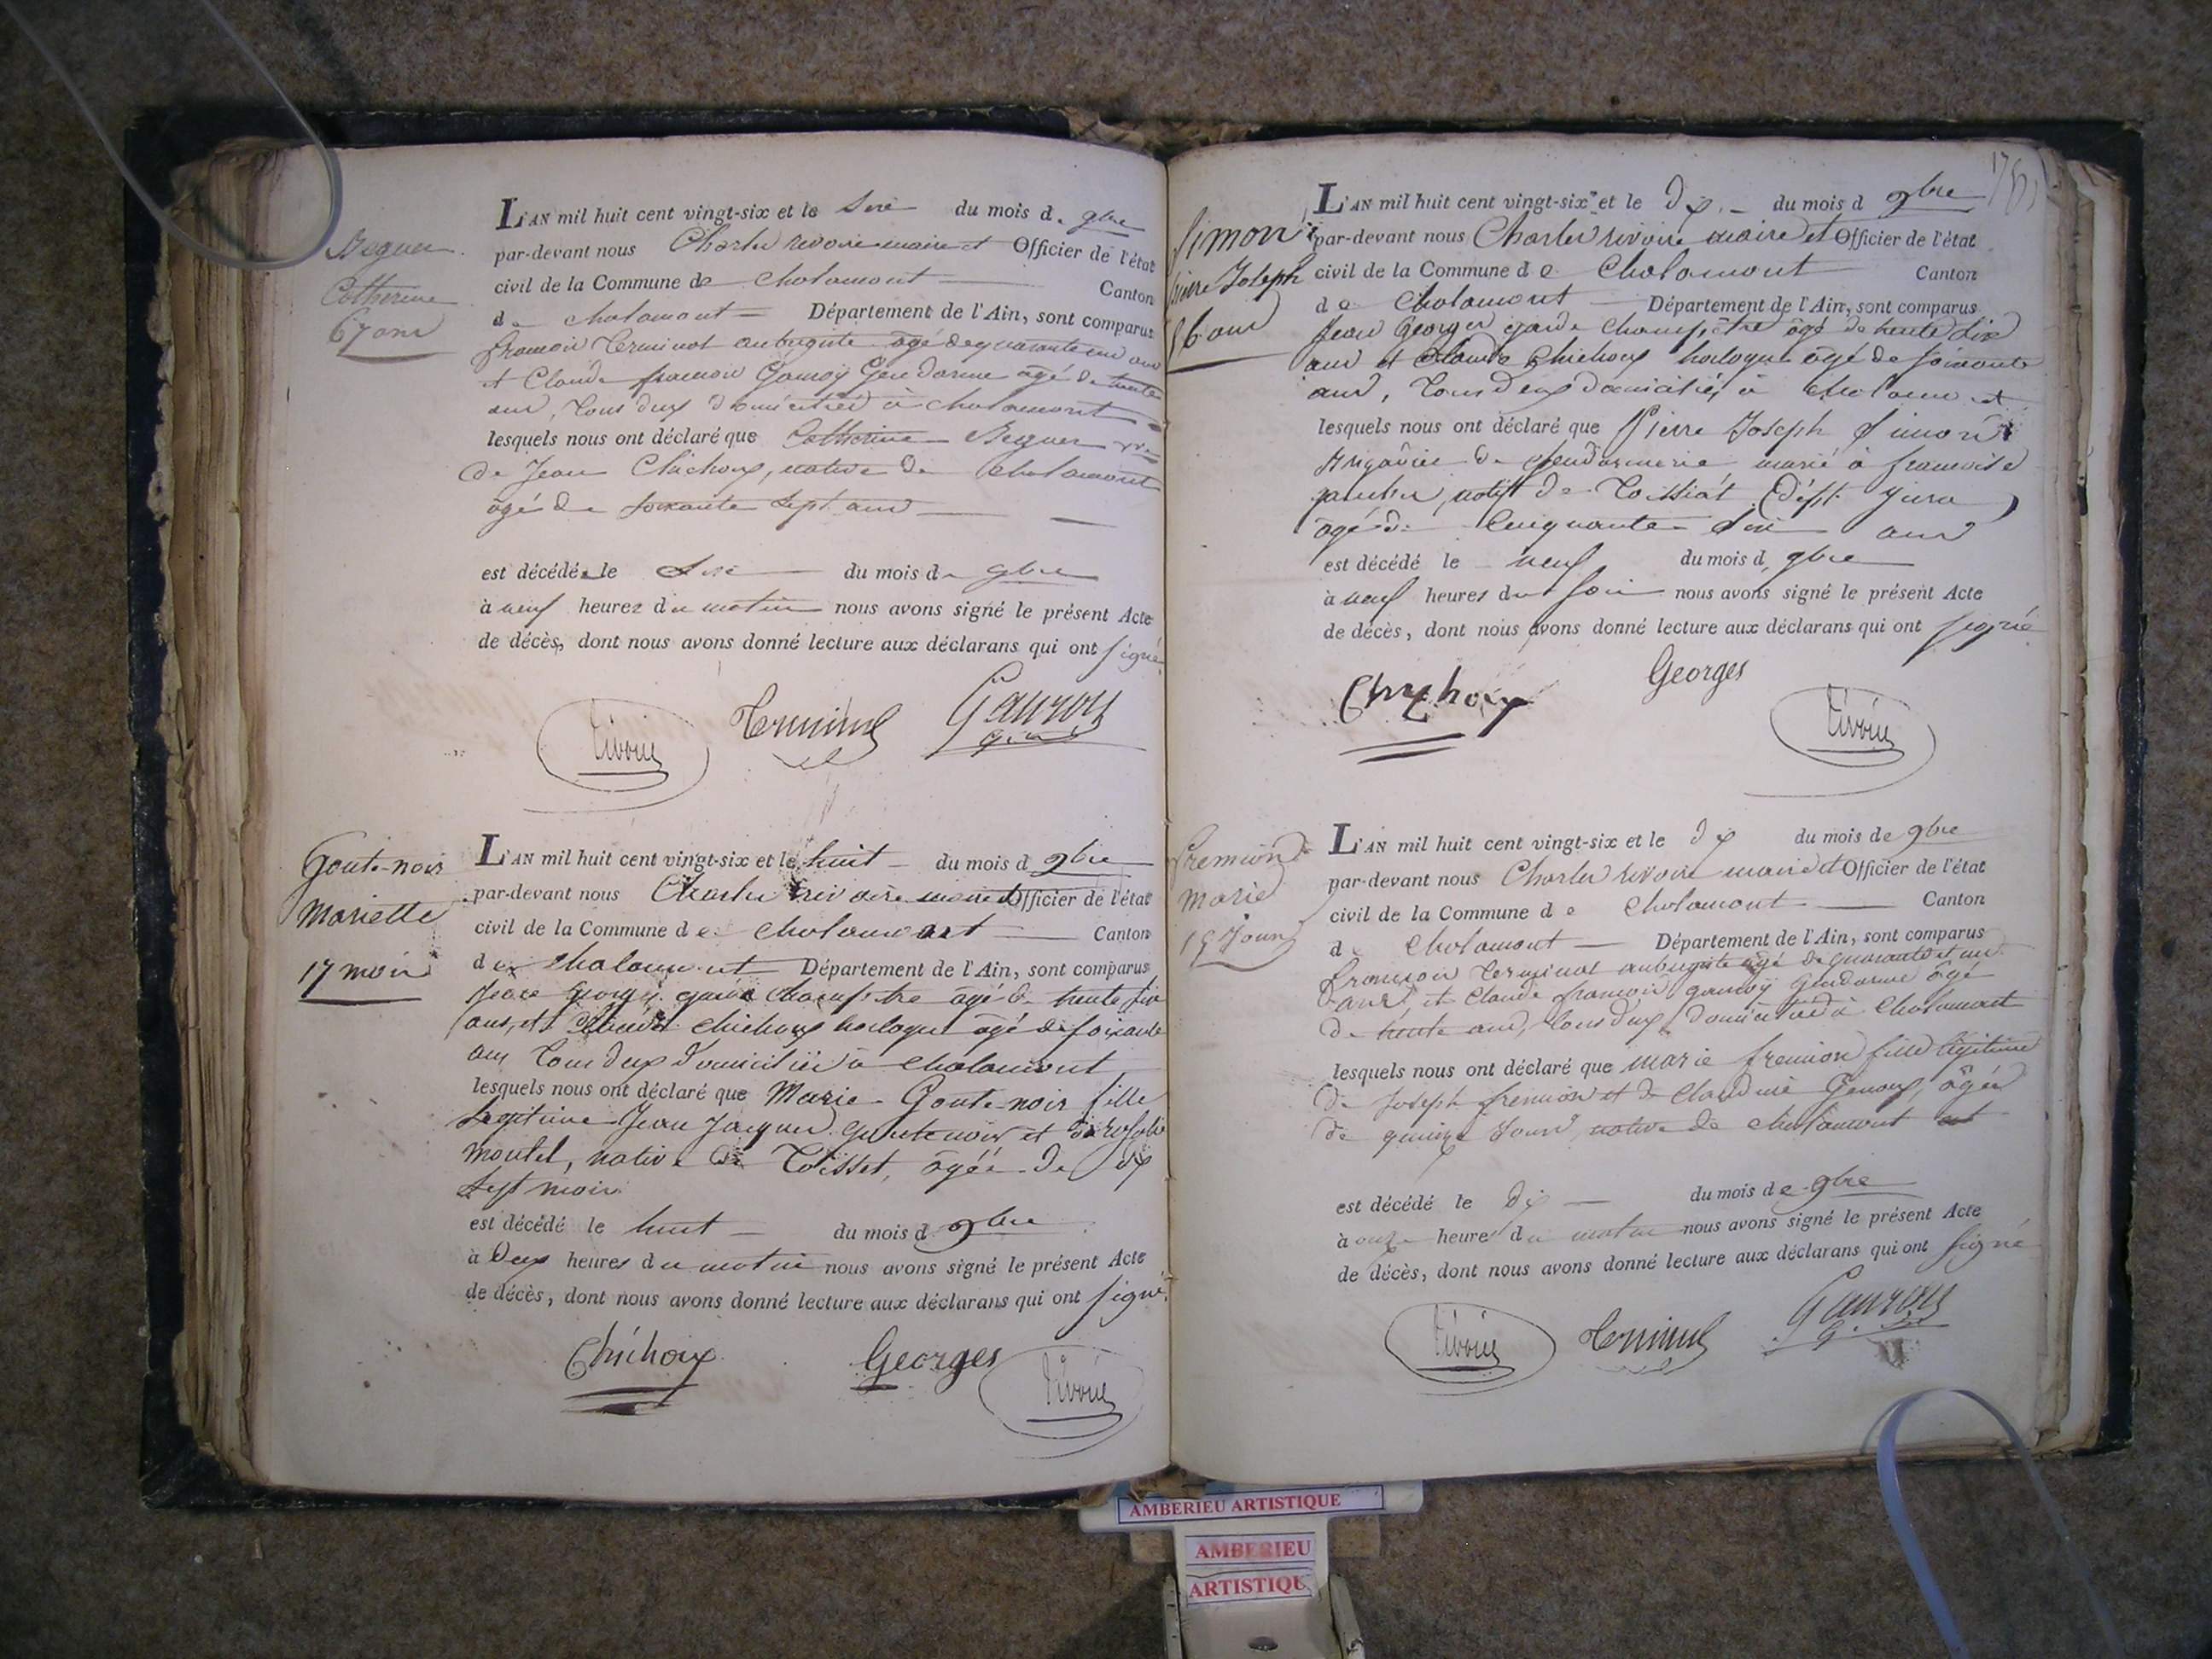 Catherine
67 ans
L'AN mil huit cent vingt-six et le six du mois de 9bre
par-devant nous Charles rivoire maire et Officier de l'état
civil de la Commune de Chalamont Canton
de chalamont Département de l'Ain, sont comparus
françois Terminot aubergiste âgé de quarante un ans
et Claude françois Gauroy Gendarme âgé de trente
ans, tous deux domiciliés à chalamont
lesquels nous ont déclaré que Catherine vve
de Jean Chichoux, native de Chalamont
âgé de soixante sept ans
est décédée le Six du mois de 9bre
à neuf heures du matin nous avons signé le présent Acte
de décès, dont nous avons donné lecture aux déclarans qui ont signé
rivoire Terminot Gauroy
Goute-noir
Mariette
17 mois
L'AN mil huit cent vingt-six et le huit du mois d 9bre
par-devant nous Charles rivoire maire et Officier de l'état
civil de la Commune de Chalamont Canton
de Chalamont Département de l'Ain, sont comparus
Jean Georges garde champêtre âgé de trente six
ans, et Claude Chichoux horloger âgé de soixante
ans tous deux domiciliés à Chalamont
lesquels nous ont déclaré que Marie Goute-noir fille
Légitime Jean Jacques Goutenoir et de rosalie
montel, native de Toisset, âgée de dix
sept mois
est décédé le huit du mois d 9bre
à Deux heures du matin nous avons signé le présent Acte
de décès, dont nous avons donné lecture aux déclarans qui ont signé
Chichoux Georges rivoire
Simon
pierre Joseph
56 ans
L'AN mil huit cent vingt-six et le Dix du mois d 9bre
par-devant nous Charles rivoire maire et Officier de l'état
civil de la Commune de Chalamont Canton
de Chalamont Département de l'Ain, sont comparus
Jean Georges garde champêtre âgé de trente six
ans et Claude Chichoux horloger âgé de soixante
ans, tous deux domiciliés à Chalamont
lesquels nous ont déclaré que Pierre Joseph Simon
Brigadier de Gendarmerie marié à françoise
natif de Toissiat (dépt. Jura)
âgé de Cinquante Six ans
est décédé le neuf du mois d 9bre
à neuf heures du soir nous avons signé le présent Acte
de décès, dont nous avons donné lecture aux déclarans qui ont signé
Chichoux Georges
rivoire
fremion
Marie
15 Jours
L'AN mil huit cent vingt-six et le dix du mois de 9bre
par-devant nous Charles rivoire maire et Officier de l'état
civil de la Commune de Chalamont Canton
de Chalamont Département de l'Ain, sont comparus
françois Terminot aubergiste âgé de quarante et un
ans et Claude françois gauroy Gendarme âgé
de trente ans, tous deux domiciliés à Chalamont
lesquels nous ont déclaré que marie fremion fille légitime
de Joseph fremion et de Claudine Genoux, âgée
de quinze Jours, native de chalamont
est décédé le Dix du mois de 9bre
à onze heures du matin nous avons signé le présent Acte
de décès, dont nous avons donné lecture aux déclarans qui ont signé
rivoire Terminot Gauroy
AMBERIEU ARTISTIQUE
AMBERIEU
ARTISTIQU